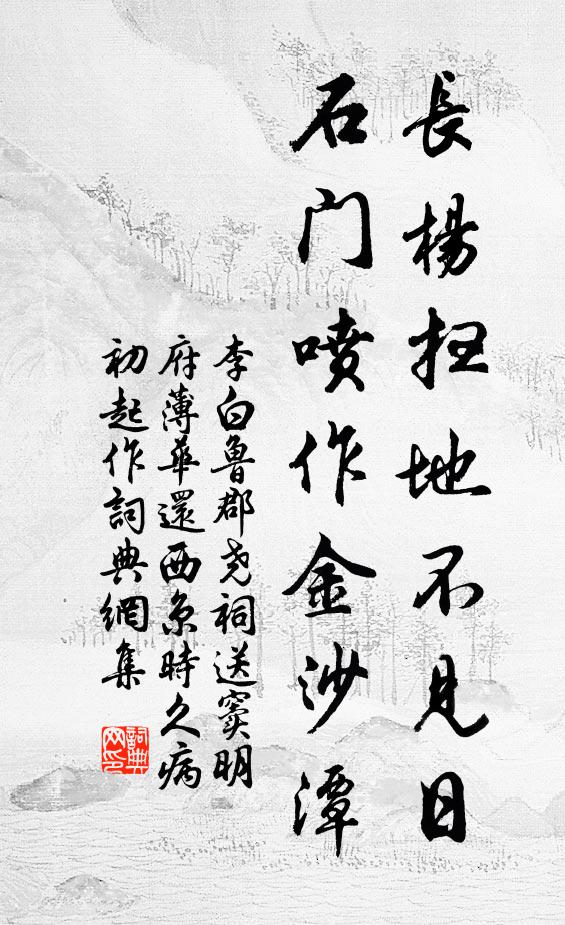 長楊扫地不見日
石门噴作金沙潭
李白魯郡尧祠送窦明
府薄華還西京時久病
初起作詞典網集
詞典
网印